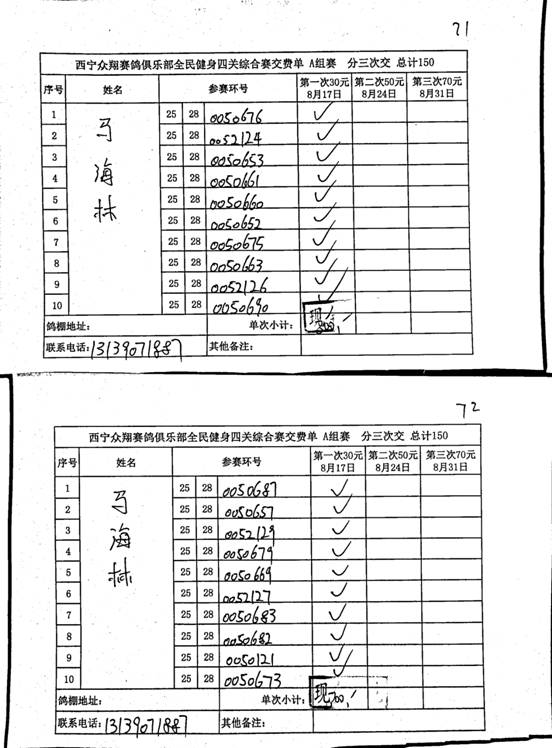 71
西宁众翔赛鸽俱乐部全民健身四关综合赛交费单 A组赛 分三次交 总计150
序号 姓名 参赛环号 第一次30元 8月17日 第二次50元 8月24日 第三次70元 8月31日
马海林
1 25 28 0050676 ✓
2 25 28 0052124 ✓
3 25 28 0050653 ✓
4 25 28 0050661 ✓
5 25 28 0050660 ✓
6 25 28 0050652 ✓
7 25 28 0050675 ✓
8 25 28 0050663 ✓
9 25 28 0052126 ✓
10 25 28 0050690 ✓
鸽棚地址: 单次小计: 现
联系电话: 13139071887 其他备注:
72
西宁众翔赛鸽俱乐部全民健身四关综合赛交费单 A组赛 分三次交 总计150
序号 姓名 参赛环号 第一次30元 8月17日 第二次50元 8月24日 第三次70元 8月31日
马海林
1 25 28 0050687 ✓
2 25 28 0050657 ✓
3 25 28 0052129 ✓
4 25 28 0050679 ✓
5 25 28 0050669 ✓
6 25 28 0052127 ✓
7 25 28 0050683 ✓
8 25 28 0050682 ✓
9 25 28 0050121 ✓
10 25 28 0050673 ✓
鸽棚地址: 单次小计: 现
联系电话: 13139071887 其他备注: